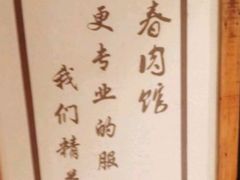 春肉馆
更专业的服
我们精